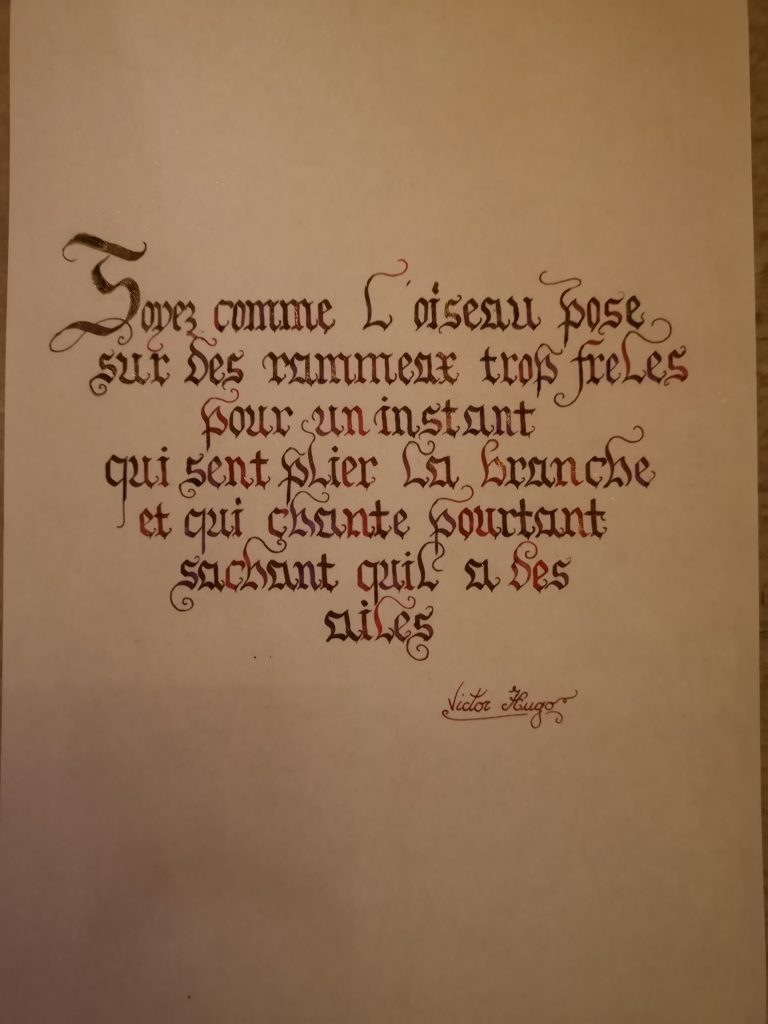 Soyez comme L'oiseau pose
sur des rammeax trop freLes
pour un instant
qui sent plier La branche
et qui chante pourtant
sachant quiL a des
aiLes
Victor Hugo